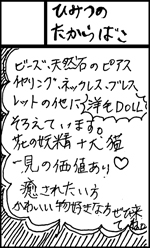 ひみつの
たからばこ
ビーズ、天然石のピアス
イヤリング、ネックレス、ブレス
レットの他に洋DOLL
そろえています。
花の妖精＋犬猫
一見の価値あり♡
癒されたい方
かわいい物好きな方ぜひ来て